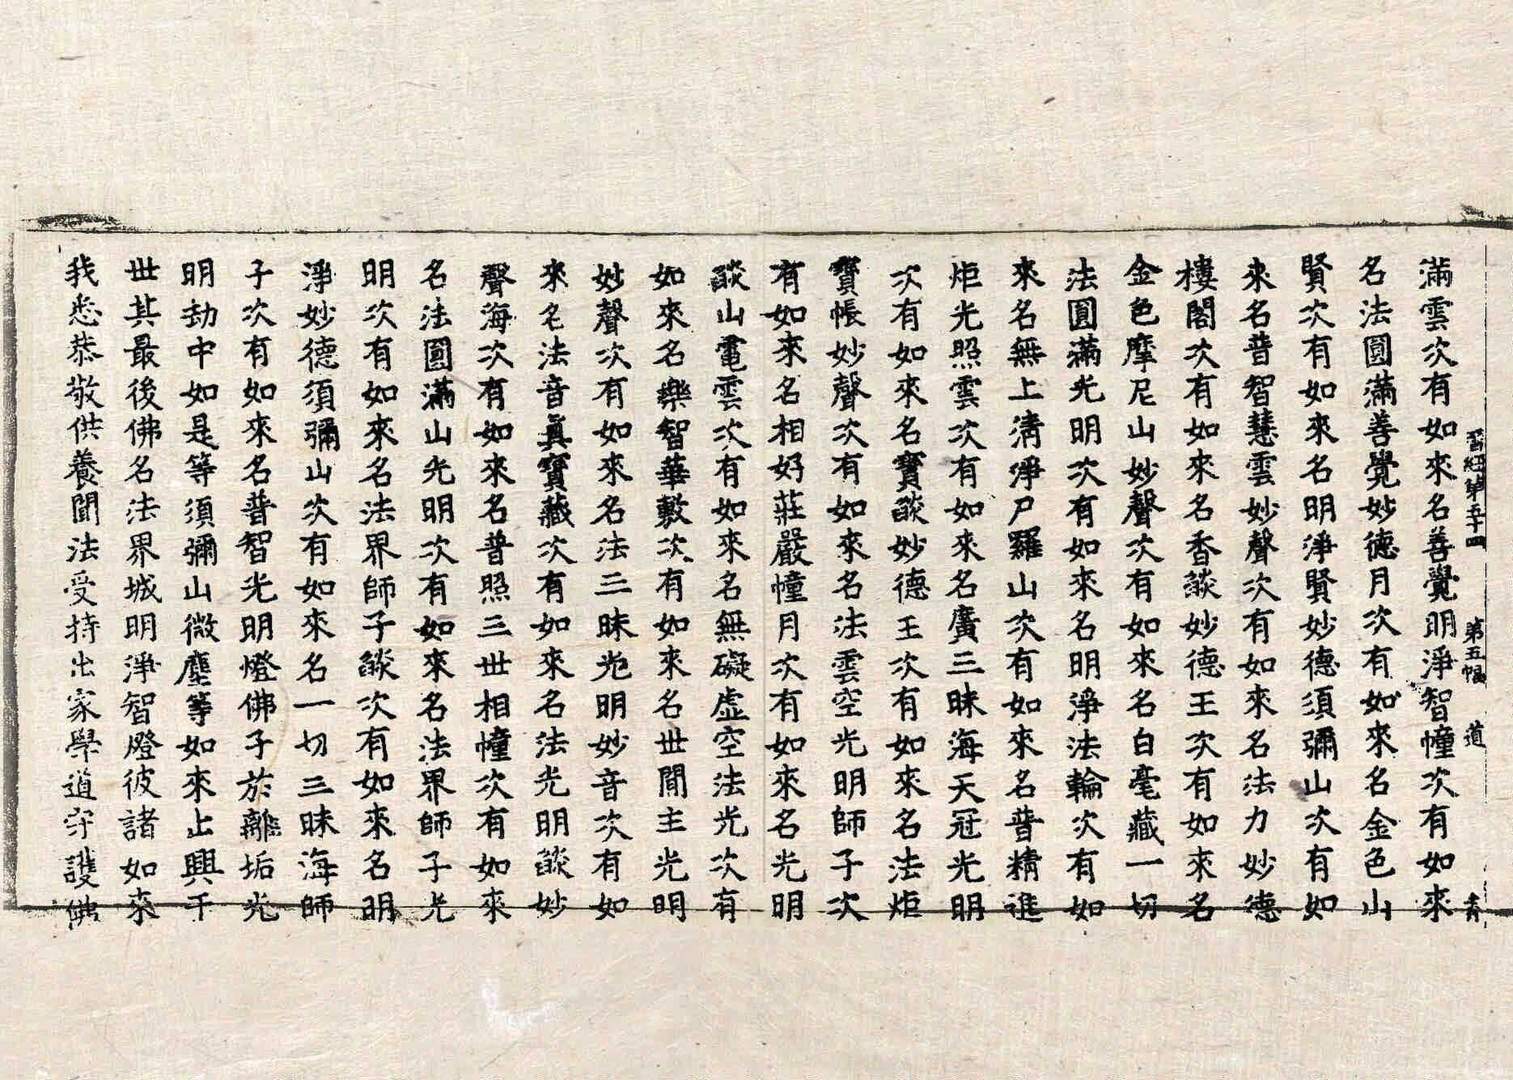 晉經第五十四 第五幅 道 青
滿雲次有如來名善覺明淨智幢次有如來
名法圓滿善覺妙德月次有如來名金色山
賢次有如來名明淨賢妙德須彌山次有如
來名普智慧雲妙聲次有如來名法力妙德
樓閣次有如來名香燄妙德王次有如來名
金色摩尼山妙聲次有如來名白毫藏一切
法圓滿光明次有如來名明淨法輪次有如
來名無上清淨尸羅山次有如來名普精進
炬光照雲次有如來名廣三昧海天冠光明
次有如來名寶燄妙德王次有如來名法炬
寶帳妙聲次有如來名法雲空光明師子次
有如來名相好莊嚴幢月次有如來名光明
燄山電雲次有如來名無礙虛空法光次有
如來名樂智華敷次有如來名世間主光明
妙聲次有如來名法三昧光明妙音次有如
來名法音真寶藏次有如來名法光明燄妙
聲海次有如來名普照三世相幢次有如來
名法圓滿山光明次有如來名法界師子光
明次有如來名法界師子燄次有如來名明
淨妙德須彌山次有如來名一切三昧海師
子次有如來名普智光明燈佛子於離垢光
明劫中如是等須彌山微塵等如來出興于
世其最後佛名法界城明淨智燈彼諸如來
我悉恭敬供養聞法受持出家學道守護佛